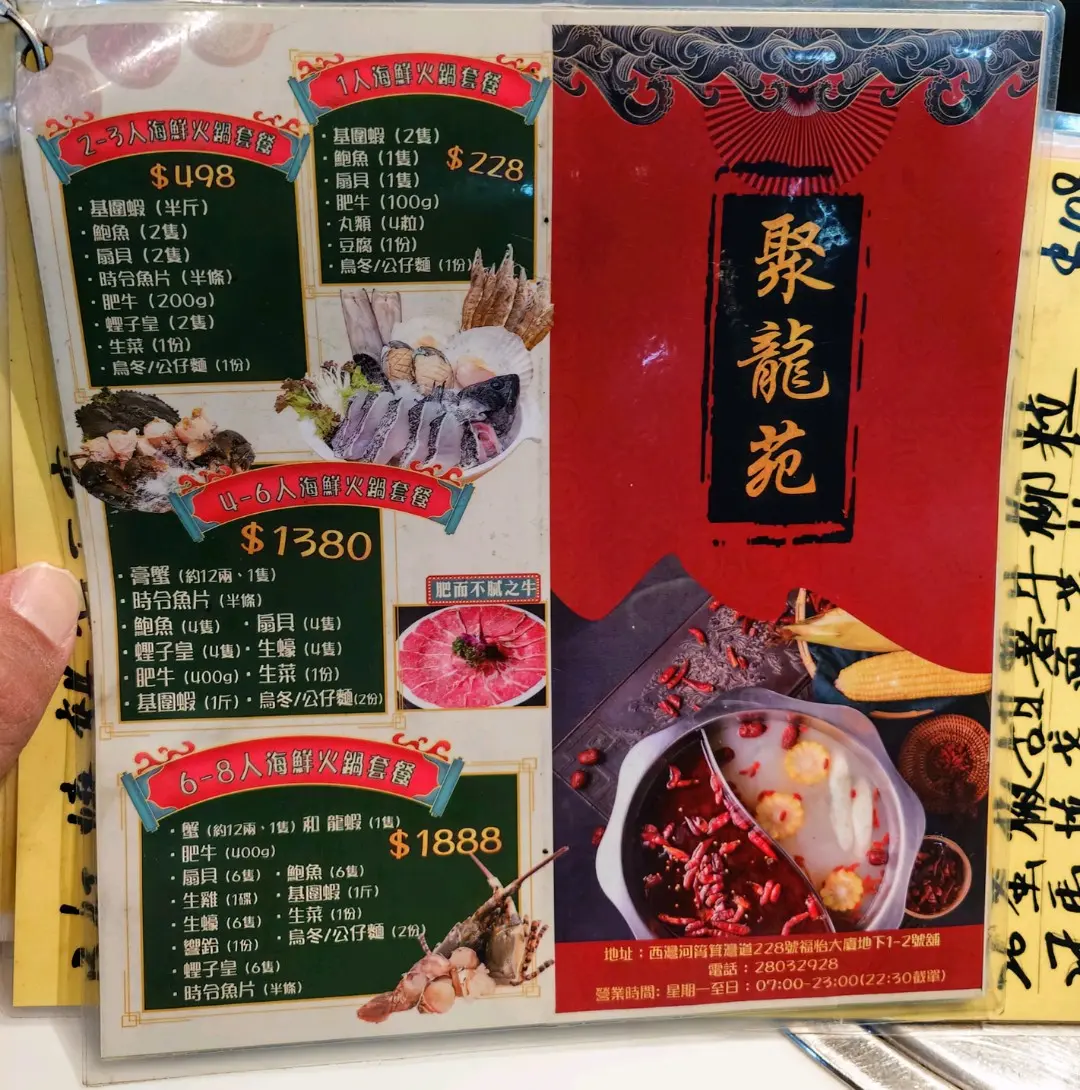 1人海鮮火鍋套餐
$228
・基圍蝦（2隻）
・鮑魚（1隻）
・扇貝（1隻）
・肥牛（100g）
・丸類（4粒）
・豆腐（1份）
・烏冬/公仔麵（1份）
2-3人海鮮火鍋套餐
$498
・基圍蝦（半斤）
・鮑魚（2隻）
・扇貝（2隻）
・時令魚片（半條）
・肥牛（200g）
・蟶子皇（2隻）
・生菜（1份）
・烏冬/公仔麵（1份）
4-6人海鮮火鍋套餐
$1380
・膏蟹（約12兩、1隻）
・時令魚片（半條）
・鮑魚（4隻）・扇貝（4隻）
・蟶子皇（4隻）・生蠔（4隻）
・肥牛（400g）・生菜（1份）
・基圍蝦（1斤）・烏冬/公仔麵（2份）
肥而不膩之牛
6-8人海鮮火鍋套餐
$1888
・蟹（約12兩、1隻）和 龍蝦（1隻）
・肥牛（400g）
・扇貝（6隻）・鮑魚（6隻）
・生雞（1碟）・基圍蝦（1斤）
・生蠔（6隻）・生菜（1份）
・響鈴（1份）・烏冬/公仔麵（2份）
・蟶子皇（6隻）
・時令魚片（半條）
聚龍苑
地址：西灣河筲箕灣道228號福怡大廈地下1-2號舖
電話：28032928
營業時間: 星期一至日：07:00-23:00(22:30截單)
$108